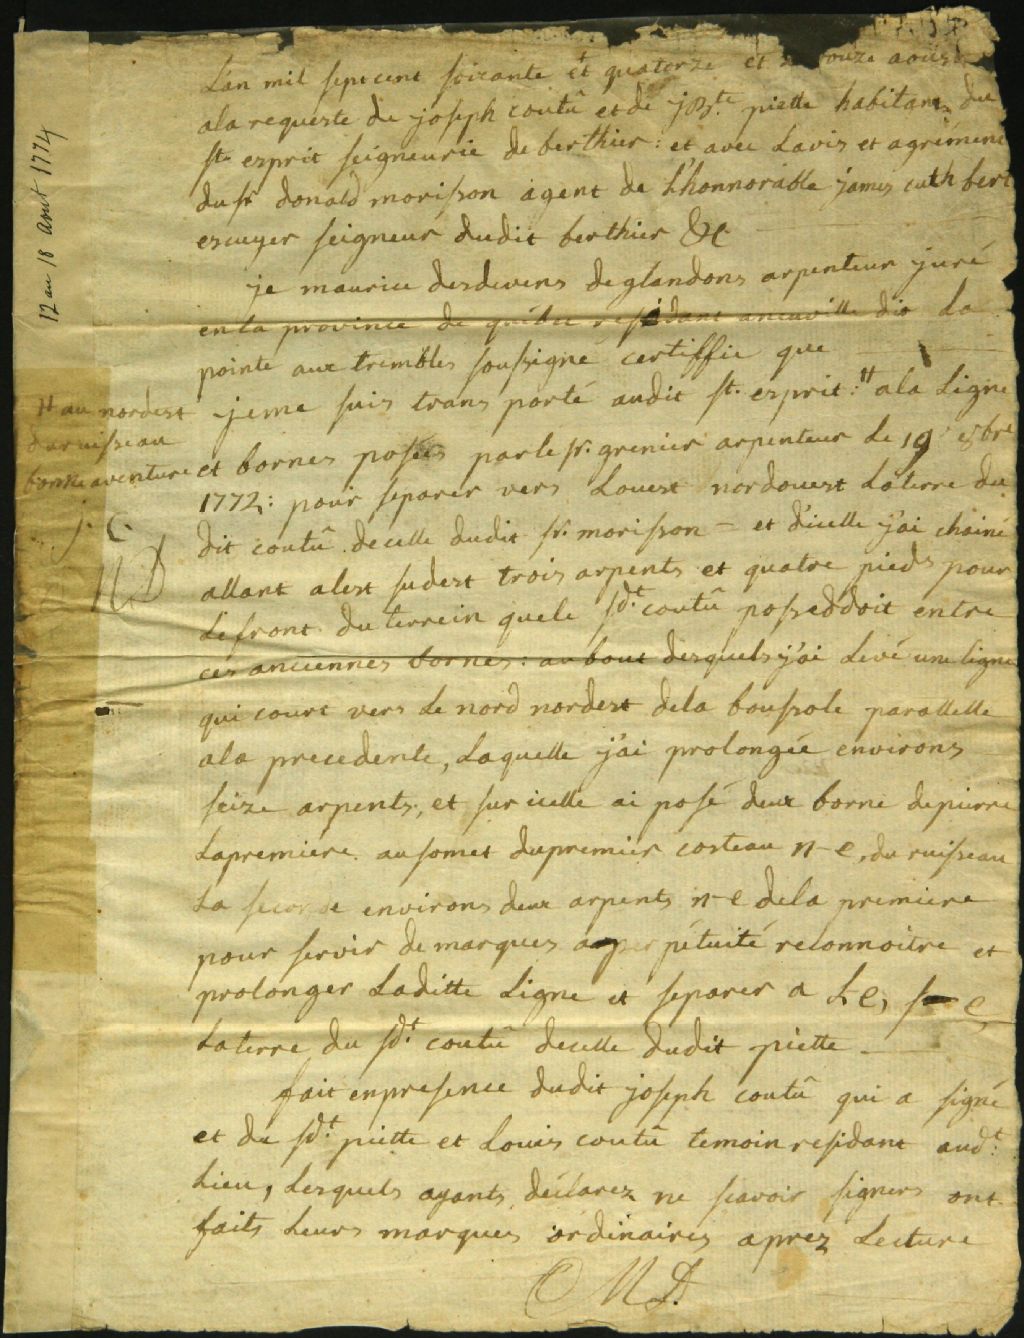 12 au 18 Aout 1774
Lan mil sept cent soixante et quatorze et le douze aoust
ala requeste de joseph coutû et de jbte. piette habitans du
st. esprit seigneurie de berthier : et avec Lavis et agrément
du sr donald morisson agent de L'honnorable james cuthbert
escuyer seigneur dudit berthier &c
je maurice desdevens deglandons arpenteur juré
en la province de québec résidant a neuville dit La
pointe aux trembles soussigné certiffie que
jeme suis trans porté audit st. esprit : # ala Ligne
# au nordest
du ruisseau
bonne aventure
j. C.
MD
et bornes posées par le sr. grenier arpenteur le 19 Xbre
1772 : pour separer vers Louest nordouest La terre du
dit coutû de celle dudit sr. morisson – et d'icelle j'ai chainé
allant alest sudest trois arpents et quatre pieds pour
Le front du terrein que le sdt. coutû posseddoit entre
ces anciennes bornes : au bout desquels j'ai Levé une ligne
qui court vers Le nord nordest dela boussole parallelle
ala precedente, Laquelle j'ai prolongée environs
seize arpents, et sur icelle ai posé deux borne de pierre
La premiere au somet du premier costeau n-e, du ruisseau
La seconde environs deux arpents n-e dela premiere
pour servir de marques a perpétuité reconnoitre et
prolonger Laditte Ligne et separer a L'e, s-e,
La terre du sdt. coutû decelle dudit piette
fait en presence dudit joseph coutû qui a signé
et du sdt. piette et Louis coutû temoin residant audt.
Lieu, Lesquels ayants déclarez ne scavoir signers ont
faits Leurs marques ordinaires aprez Lecture
MD.